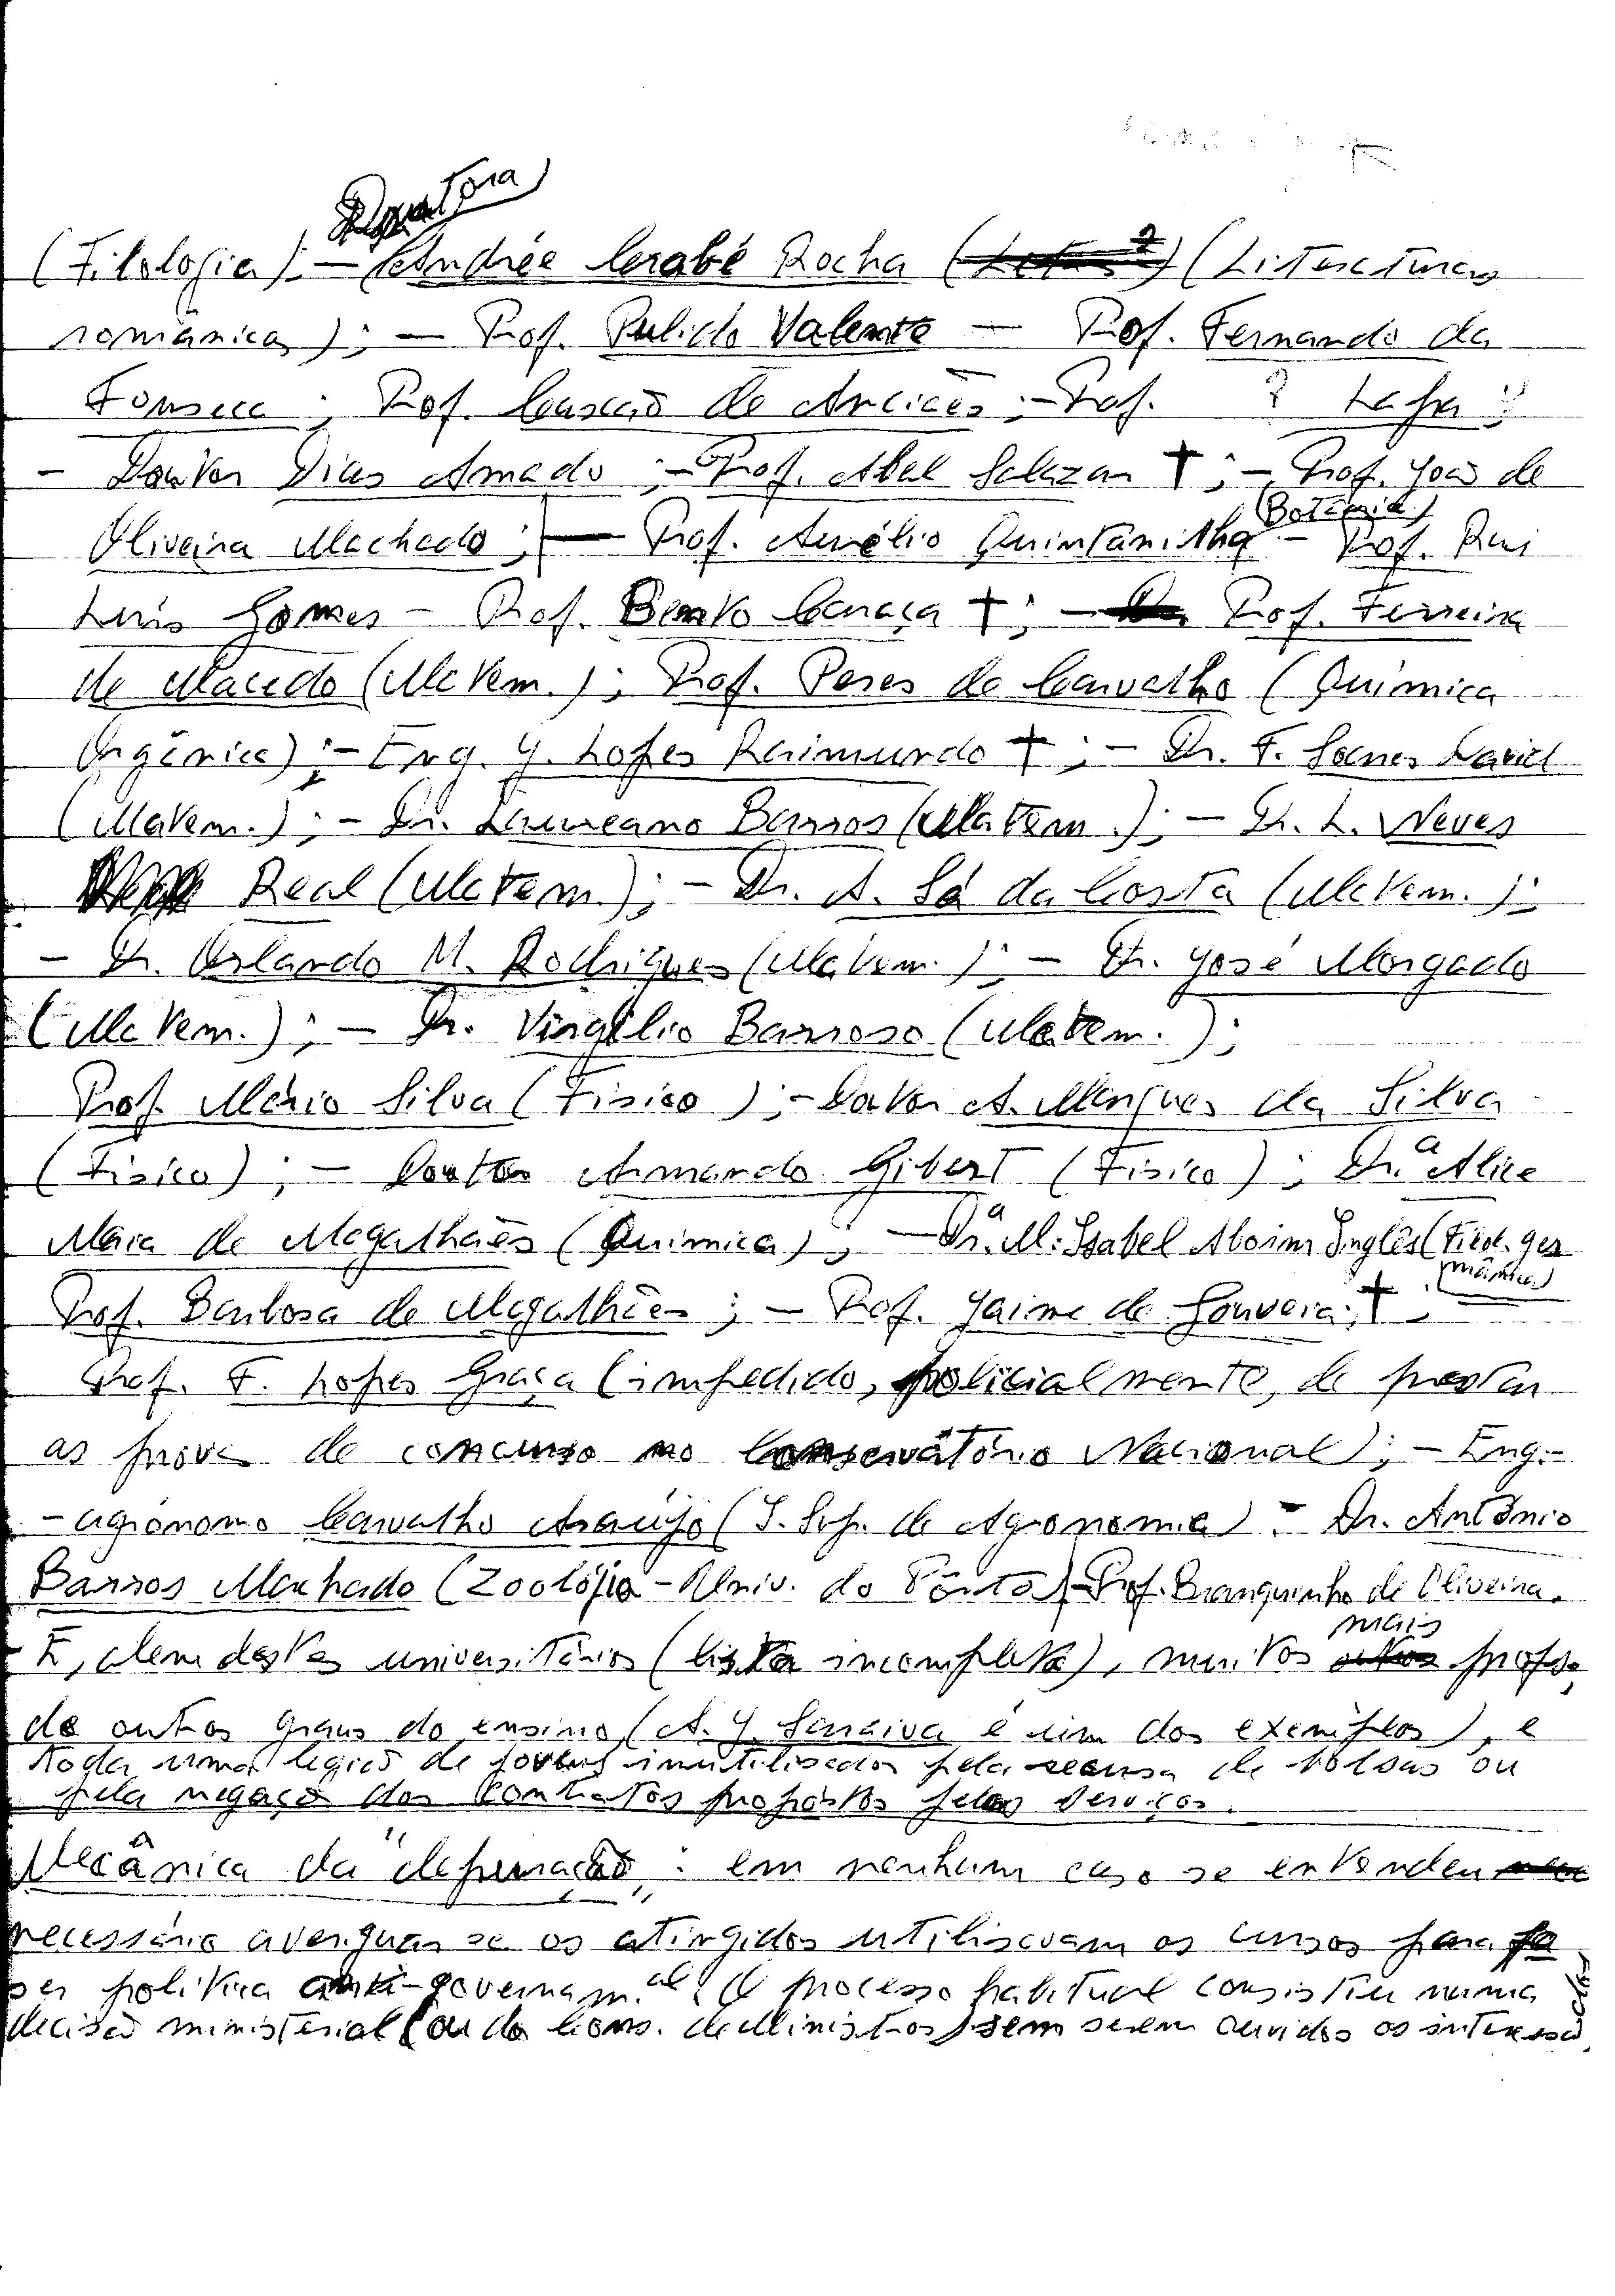 Doutora
(Filologia); — Andrée Crabé Rocha (Literaturas
românicas); — Prof. Pulido Valente — Prof. Fernando da
Fonseca; Prof. Cascão de Anciães; — Prof. ? Lapa;
- Doutor Dias Amado; — Prof. Abel Salazar †; — Prof. João de
Oliveira Machado; — Prof. Aurélio Quintanilha (Botânica) — Prof. Rui
Luís Gomes — Prof. Bento Caraça †; — Prof. Ferreira
de Macedo (Matem.); Prof. Peres de Carvalho (Química
Orgânica); — Eng. J. Lopes Raimundo †; — Dr. F. Soares David
(Matem.); — Dr. Laureano Barros (Matem.); — Dr. L. Neves
Real (Matem.); — Dr. A. Sá da Costa (Matem.);
- Dr. Orlando M. Rodrigues (Matem.); — Dr. José Morgado
(Matem.); — Dr. Virgílio Barroso (Matem.);
Prof. Mário Silva (Físico); — Doutor A. Marques da Silva
(Físico); — Doutor Armando Gibert (Físico); Dr.ª Alice
Maia de Magalhães (Química); — Dr.ª M. Isabel Aboim Inglês (Filol. ger
mânica)
Prof. Barbosa de Magalhães; — Prof. Jaime de Gouveia; †
Prof. F. Lopes Graça (impedido, policialmente, de prestar
as provas de concurso no Conservatório Nacional); — Eng.-
-agrónomo Carvalho Araújo (I. Sup. de Agronomia) — Dr. António
Barros Machado (Zoología - Univ. do Pôrto) — Prof. Branquinho de Oliveira.
mais
E, alem destes universitários (lista incompleta), muitos outros profs.
de outros graus do ensino (A. J. Saraiva é um dos exemplos), e
toda uma legião de jovens inutilisados pela recusa de bolsas ou
pela negação dos contratos propostos pelos serviços.
Mecânica da "depuração": em nenhum caso se entendeu
necessário averiguar se os atingidos utilisavam os cursos para fa
zer politica anti-governam.al O processo habitual consistiu numa
decisão ministerial (ou do Cons. de Ministros) sem serem ouvidos os interessa